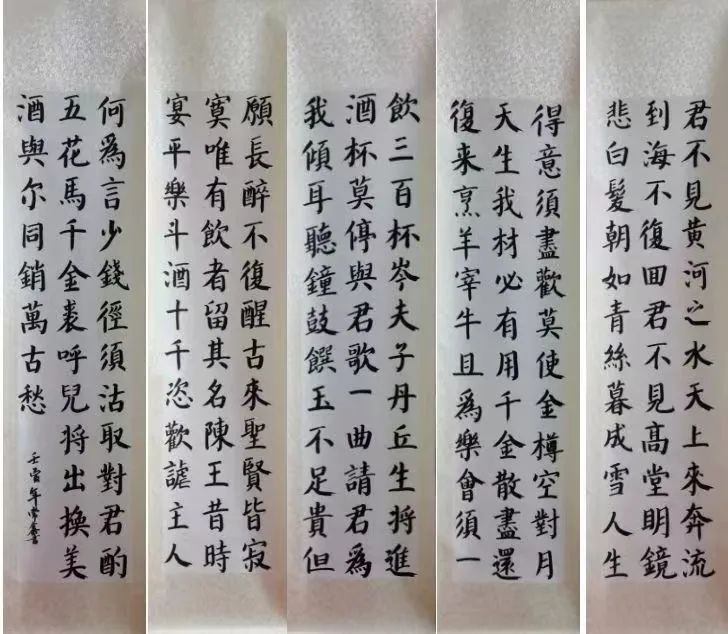 君不見黄河之水天上來奔流
到海不復囬君不見髙堂明鏡
悲白髮朝如青絲暮成雪人生
得意須盡歡莫使金樽空對月
天生我材必有用千金散盡還
復来烹羊宰牛且爲樂會須一
飲三百杯岑夫子丹丘生將進
酒杯莫停與君歌一曲請君爲
我傾耳聽鐘鼓饌玉不足貴但
願長醉不復醒古來聖賢皆寂
寞唯有飲者留其名陳王昔時
宴平樂斗酒十千恣歡謔主人
何爲言少錢徑須沽取對君酌
五花馬千金裘呼兒將出換美
酒與尔同銷萬古愁
壬寅年書